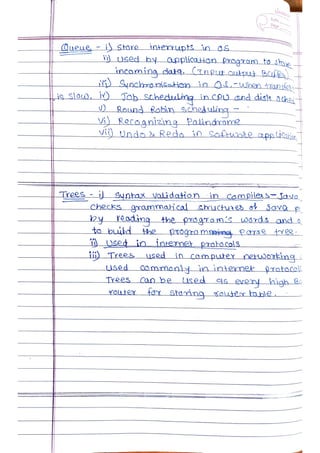 Queue - i) Store interrupts in OS
ii) Used by application program to store
incoming data. (Input output Buffer)
iii) Synchronisation in O.S. - when transfer
is slow. iv) Job Scheduling in CPU and disk sched
v) Round Robin scheduling -
vi) Recognizing Palindrome
vii) Undo & Redo in Software applications
Trees - i) Syntax validation in compilers - Java
checks grammatical structures of Java p
by reading the program's words and
to build the program parse tree.
ii) Used in internet protocols
iii) Trees used in computer networking
used commonly in internet protocol
Trees can be used as every high B
router for storing router table.